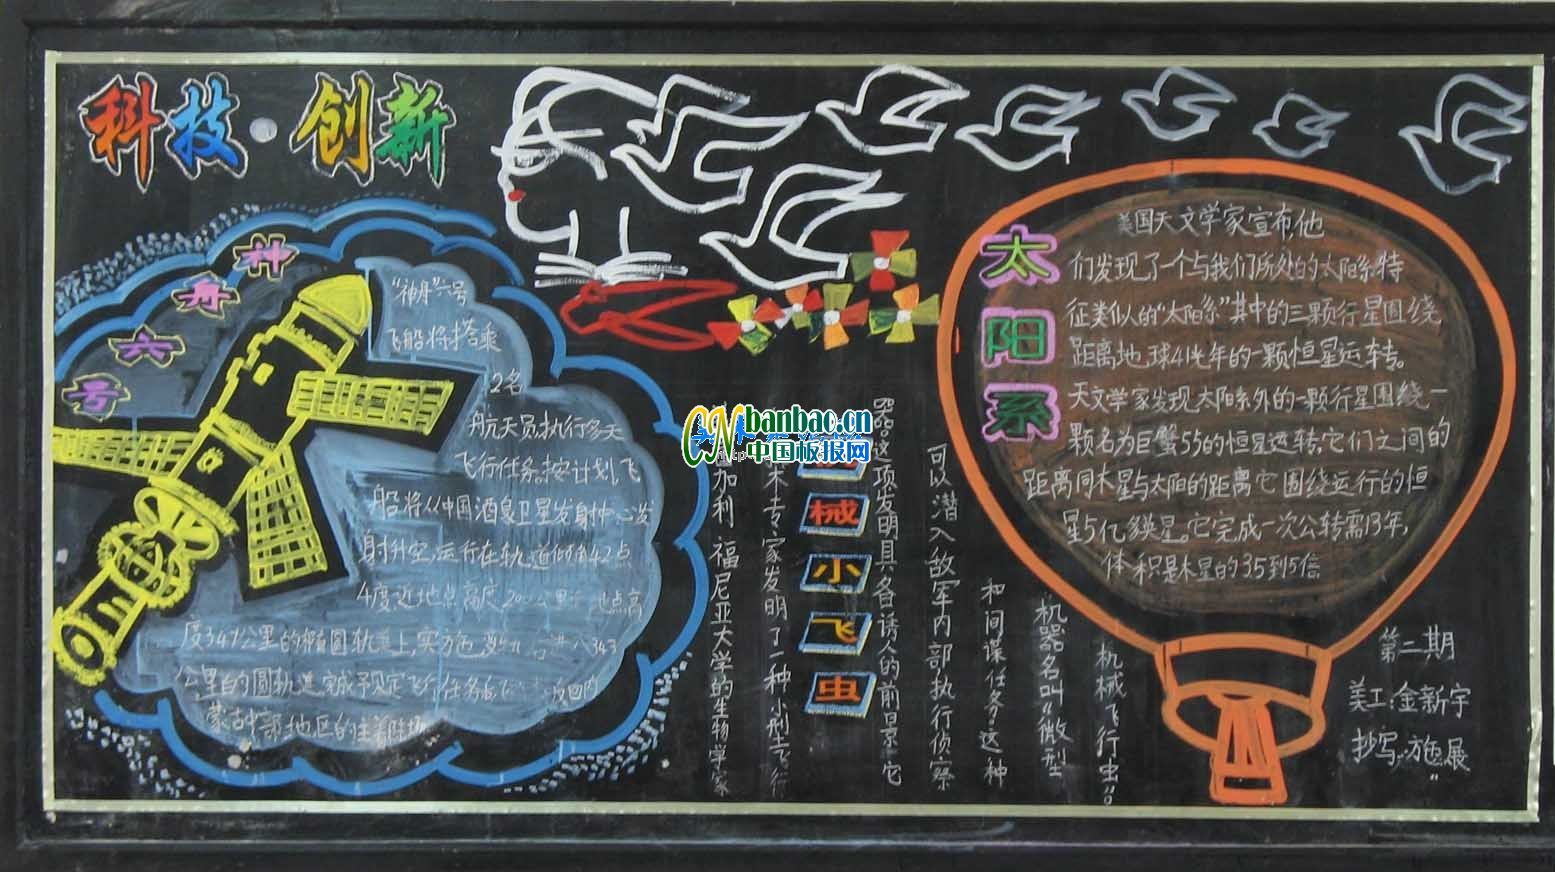 科技·创新
神舟六号
"神舟"六号
飞船将搭乘
2名
航天员,执行多天
飞行任务。按计划,飞
船将从中国酒泉卫星发射中心发
射升空,运行在轨道倾角42点
4度近地点高度200公里
度347公里的椭圆轨道上,实施变轨后进入343
公里的圆轨道,完成予见定飞行任务后
蒙古中部地区的主着陆场
机械小飞虫
国加利福尼亚大学的生物学家
术专家发明了一种小型飞行
器。这项发明具备诱人的前景:它
可以潜入敌军内部执行侦察
和间谍任务。这种
机器名叫"微型
机械飞行虫"。
太阳系
美国天文学家宣布,他
们发现了一个与我们所处的太阳系特
征类似的"太阳系"其中的三颗行星围绕
距离地球41光年的一颗恒星运转。
天文学家发现太阳系外的一颗行星围绕一
颗名为巨蟹55的恒星运转,它们之间的
距离同木星与太阳的距离它围绕运行的恒
星5亿多英星。它完成一次公转需13年,
体积是木星的3.5到5倍
第二期
美工:金新宇
抄写:施展
CN banbao.cn
中国板报网